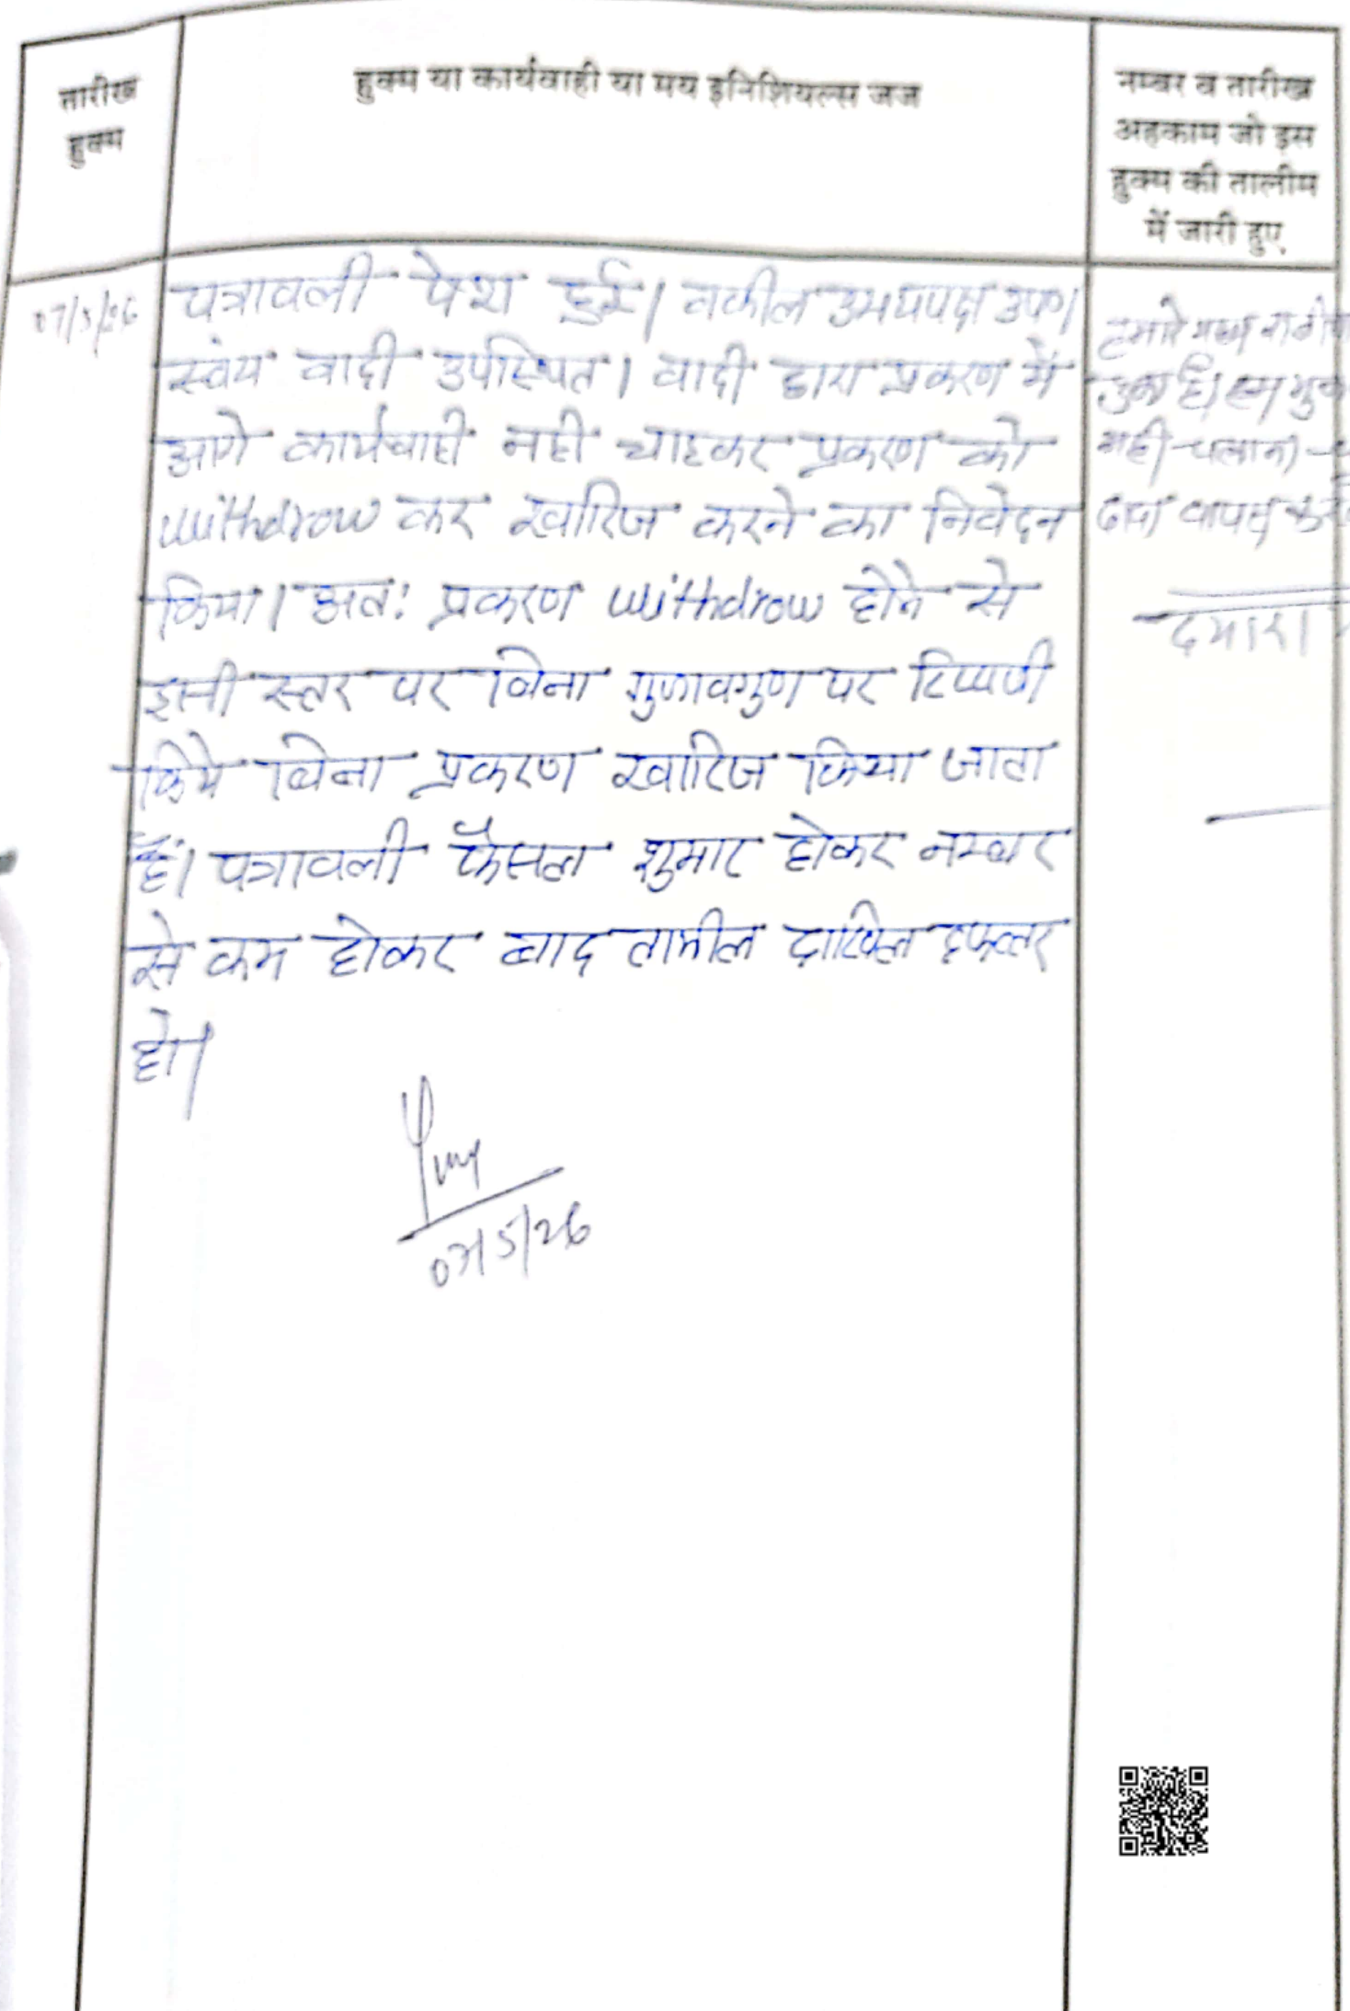 तारीख
हुक्म
हुक्म या कार्यवाही या मय इनिशियल्स जज
नम्बर व तारीख
अहकाम जो इस
हुक्म की तालीम
में जारी हुए
07/5/26
पत्रावली पेश हुई। वकील उभयपक्ष उप०।
स्वंय वादी उपस्थित। वादी द्वारा प्रकरण में
आगे कार्यवाही नही चाहकर प्रकरण को
withdrow कर खारिज करने का निवेदन
किया। अत: प्रकरण withdrow होने से
इसी स्तर पर बिना गुणावगुण पर टिप्पणी
किये बिना प्रकरण खारिज किया जाता
है। पत्रावली फैसल शुमार होकर नम्बर
से कम होकर बाद तामील दाखिल दफ्तर
हो।
07/5/26
हमारे मध्य
है। हम
नही चलाना
दावा वापस